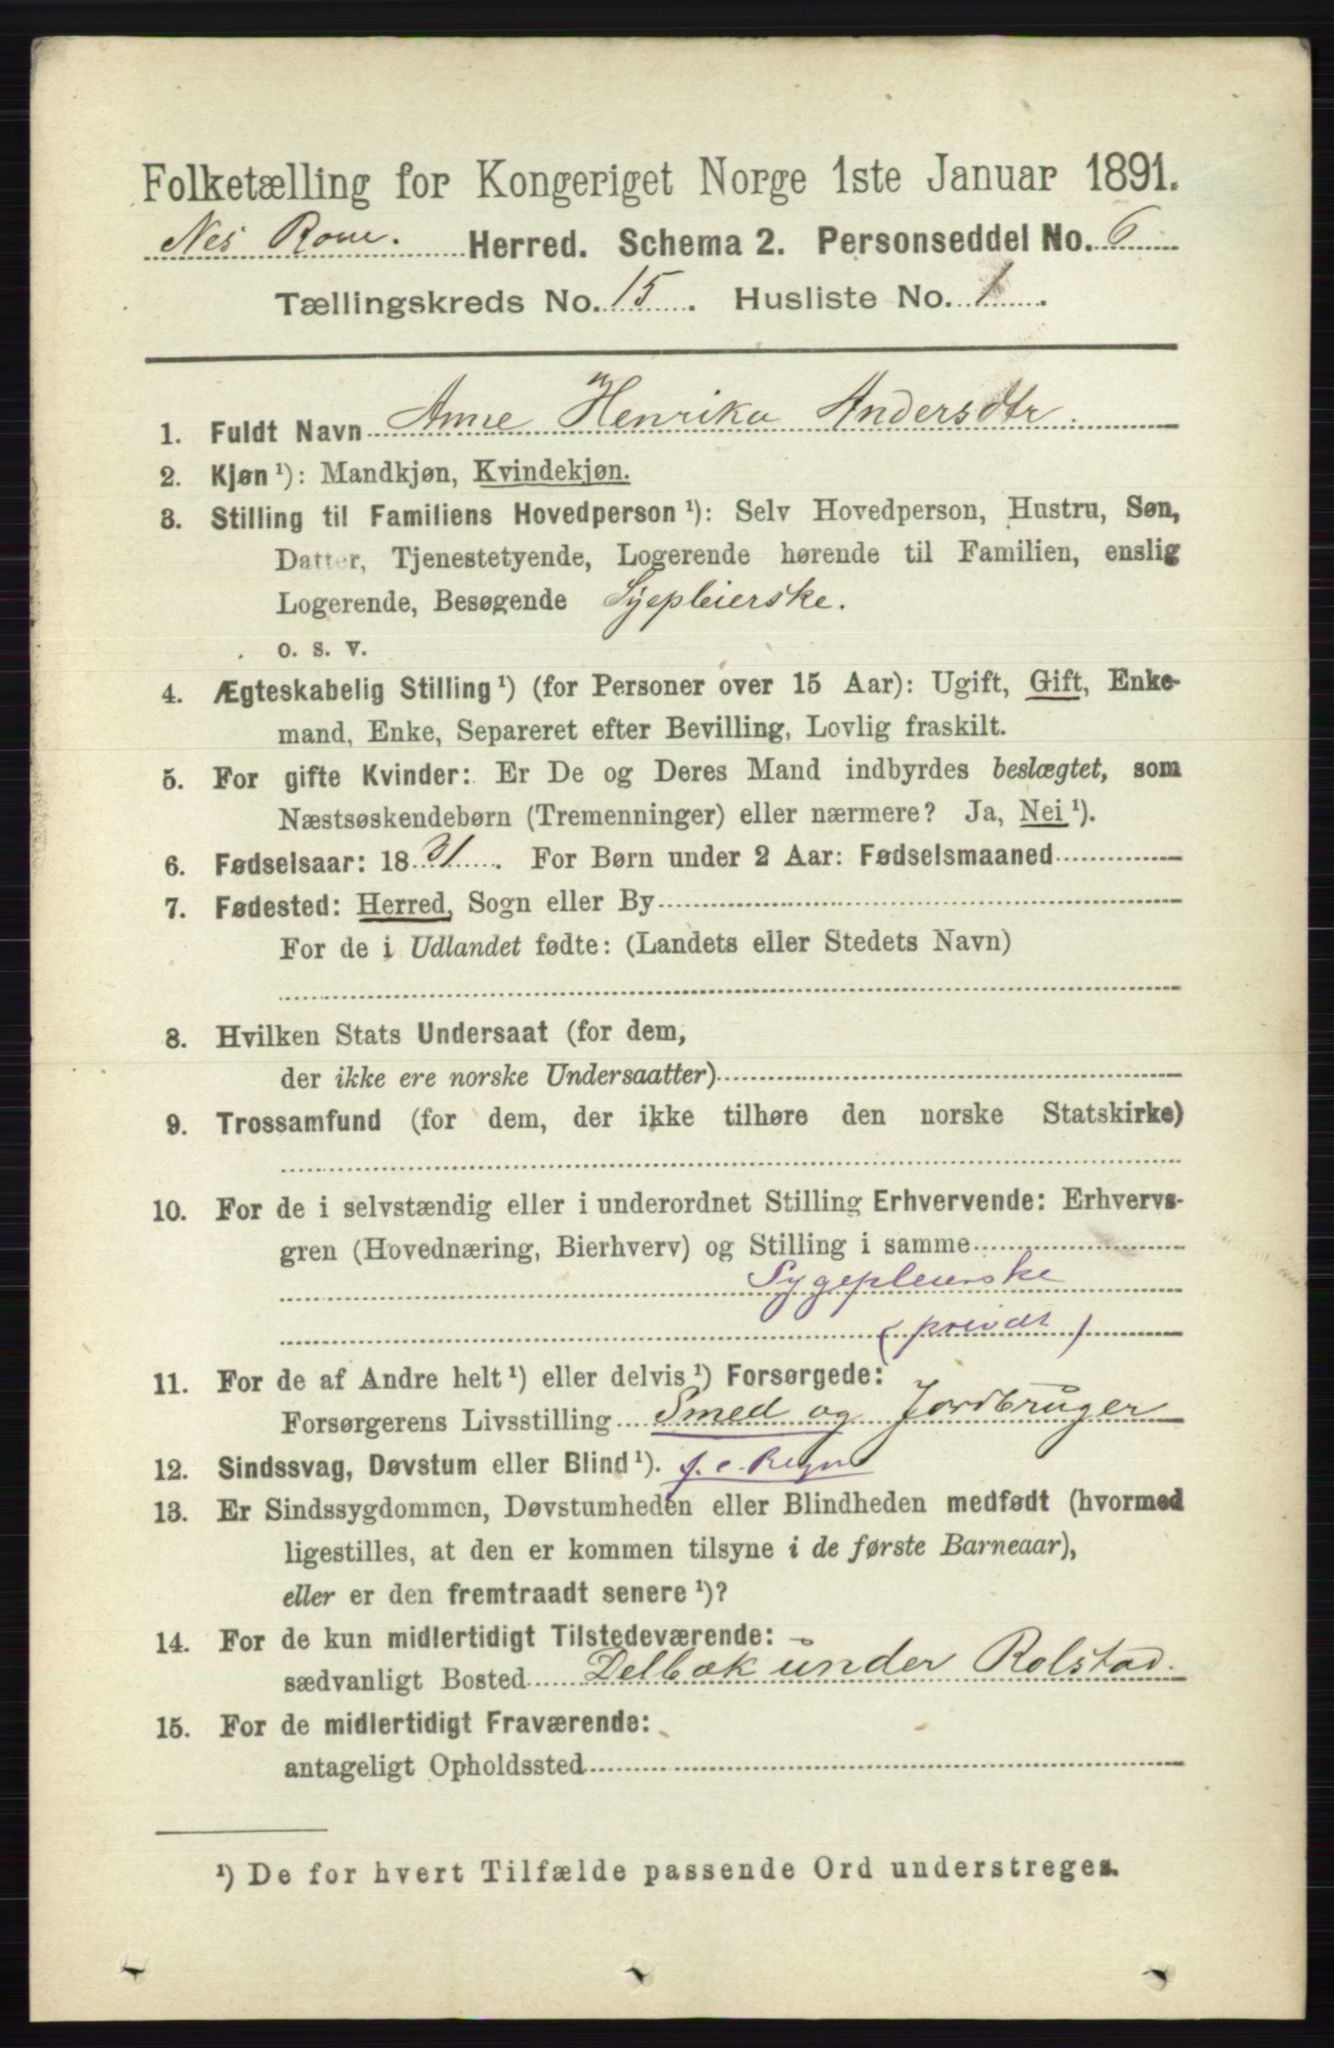 Folketælling for Kongeriget Norge 1ste Januar 1891.
Nes Rom. Herred. Schema 2. Personseddel No. 6
Tællingskreds No. 15. Husliste No. 1.
1. Fuldt Navn Anne Henrika Andersdtr.
2. Kjøn ¹): Mandkjøn, Kvindekjøn.
3. Stilling til Familiens Hovedperson ¹): Selv Hovedperson, Hustru, Søn,
Datter, Tjenestetyende, Logerende hørende til Familien, enslig
Logerende, Besøgende Syepleierske.
o. s. v.
4. Ægteskabelig Stilling ¹) (for Personer over 15 Aar): Ugift, Gift, Enke-
mand, Enke, Separeret efter Bevilling, Lovlig fraskilt.
5. For gifte Kvinder: Er De og Deres Mand indbyrdes beslægtet, som
Næstsøskendebørn (Tremenninger) eller nærmere? Ja, Nei ¹).
6. Fødselsaar: 1831. For Børn under 2 Aar: Fødselsmaaned
7. Fødested: Herred, Sogn eller By
For de i Udlandet fødte: (Landets eller Stedets Navn)
8. Hvilken Stats Undersaat (for dem,
der ikke ere norske Undersaatter)
9. Trossamfund (for dem, der ikke tilhøre den norske Statskirke)
10. For de i selvstændig eller i underordnet Stilling Erhvervende: Erhvervs-
gren (Hovednæring, Bierhverv) og Stilling i samme
Sygepleierske
(privat)
11. For de af Andre helt ¹) eller delvis ¹) Forsørgede:
Forsørgerens Livsstilling Smed og Jordbruger
12. Sindssvag, Døvstum eller Blind ¹). f. e. Regn
13. Er Sindssygdommen, Døvstumheden eller Blindheden medfødt (hvormed
ligestilles, at den er kommen tilsyne i de første Barneaar),
eller er den fremtraadt senere ¹)?
14. For de kun midlertidigt Tilstedeværende:
sædvanligt Bosted Delbæk under Rolstad.
15. For de midlertidigt Fraværende:
antageligt Opholdssted
¹) De for hvert Tilfælde passende Ord understreges.